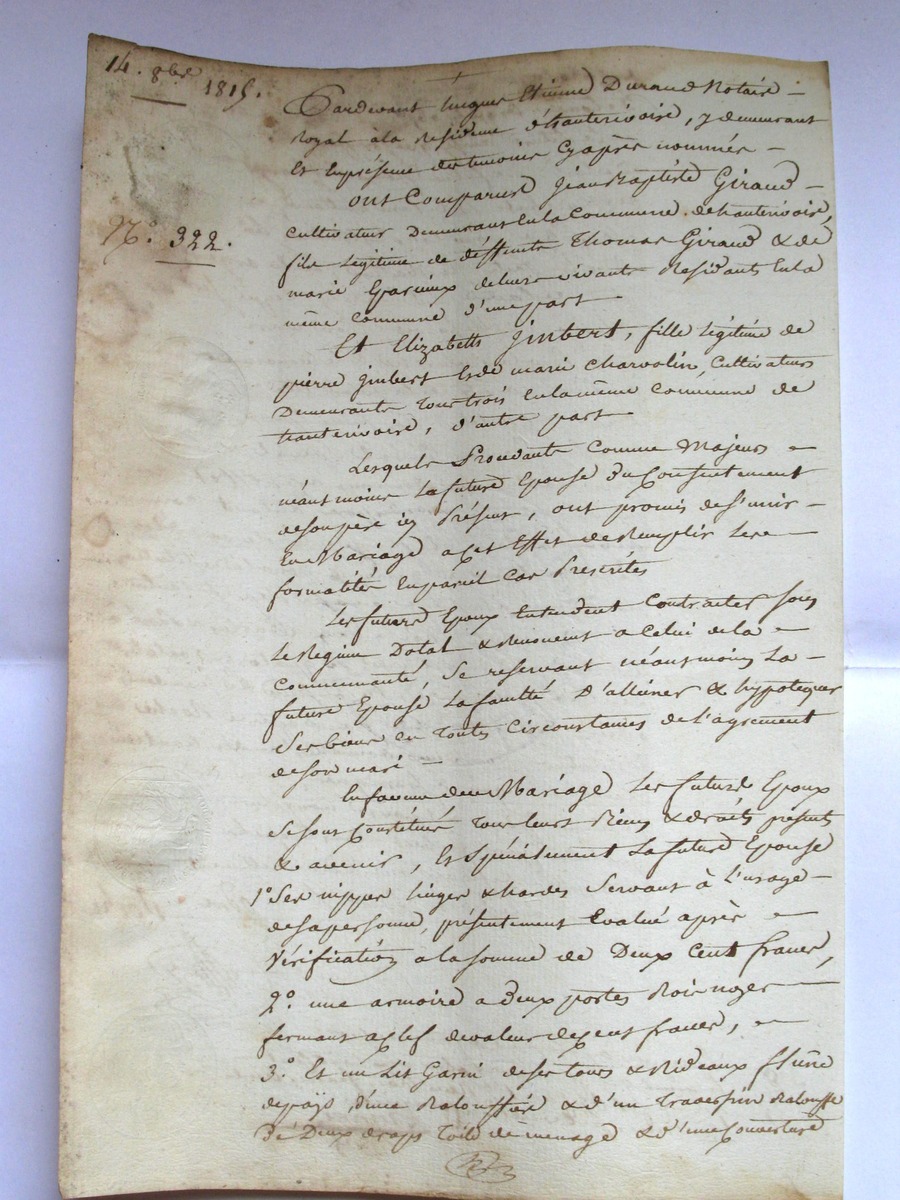 14. 8bre 1815.
N.° 322.
Pardevant hugues Etienne Durand Notaire
royal à la residence d'hauterivoire, y demeurant
et En présence des temoins cy après nommés
ont Comparus Jean Baptiste Giraud
Cultivateur Demeurant En la Commune de hauterivoire,
fils Légitime de deffunts Thomas Giraud & de
marie de leurs vivants Residants En la
même commune d'une part
Et Elizabeth Jmbert, fille Légitime de
pierre Jmbert & de marie Charvolin, Cultivateurs
Demeurants Tous trois En la même commune de
hauterivoire, d'autre part
Lesquels Procédants Comme Majeurs
néantmoins La future Epouse du Consentement
de son père icy Présent, ont promis de S'unir
En Mariage a cet Effet de Remplir Les
formalités En pareil Cas Prescrites
Les futurs Epoux Entendent Contracter sous
Le Regime Dotal & Renoncent a Celui de la
Communauté, Se reservant néantmoins La
future Epouse La faculté D'alliéner & hypotequer
Ses biens en Toutes Circonstances de L'agrement
de Son mari
En faveur du Mariage Les futurs Epoux
Se sont Constitués Tous leurs Biens & droits présents
& avenir, Et Spécialement La future Epouse
1° Ses nippes linges & hardes Servant à L'usage
de sa personne, présentement Evalué après
Vérification a la somme de Deux Cent francs,
2° une armoire a deux portes Bois noyer
fermant a clef de valeur de cent francs,
3° Et un Lit Garni de ses tours & Rideaux
de pays, d'une Balouffière & d'un Traversin Balouffe
de Deux draps Toile de menage & d'une Couverture